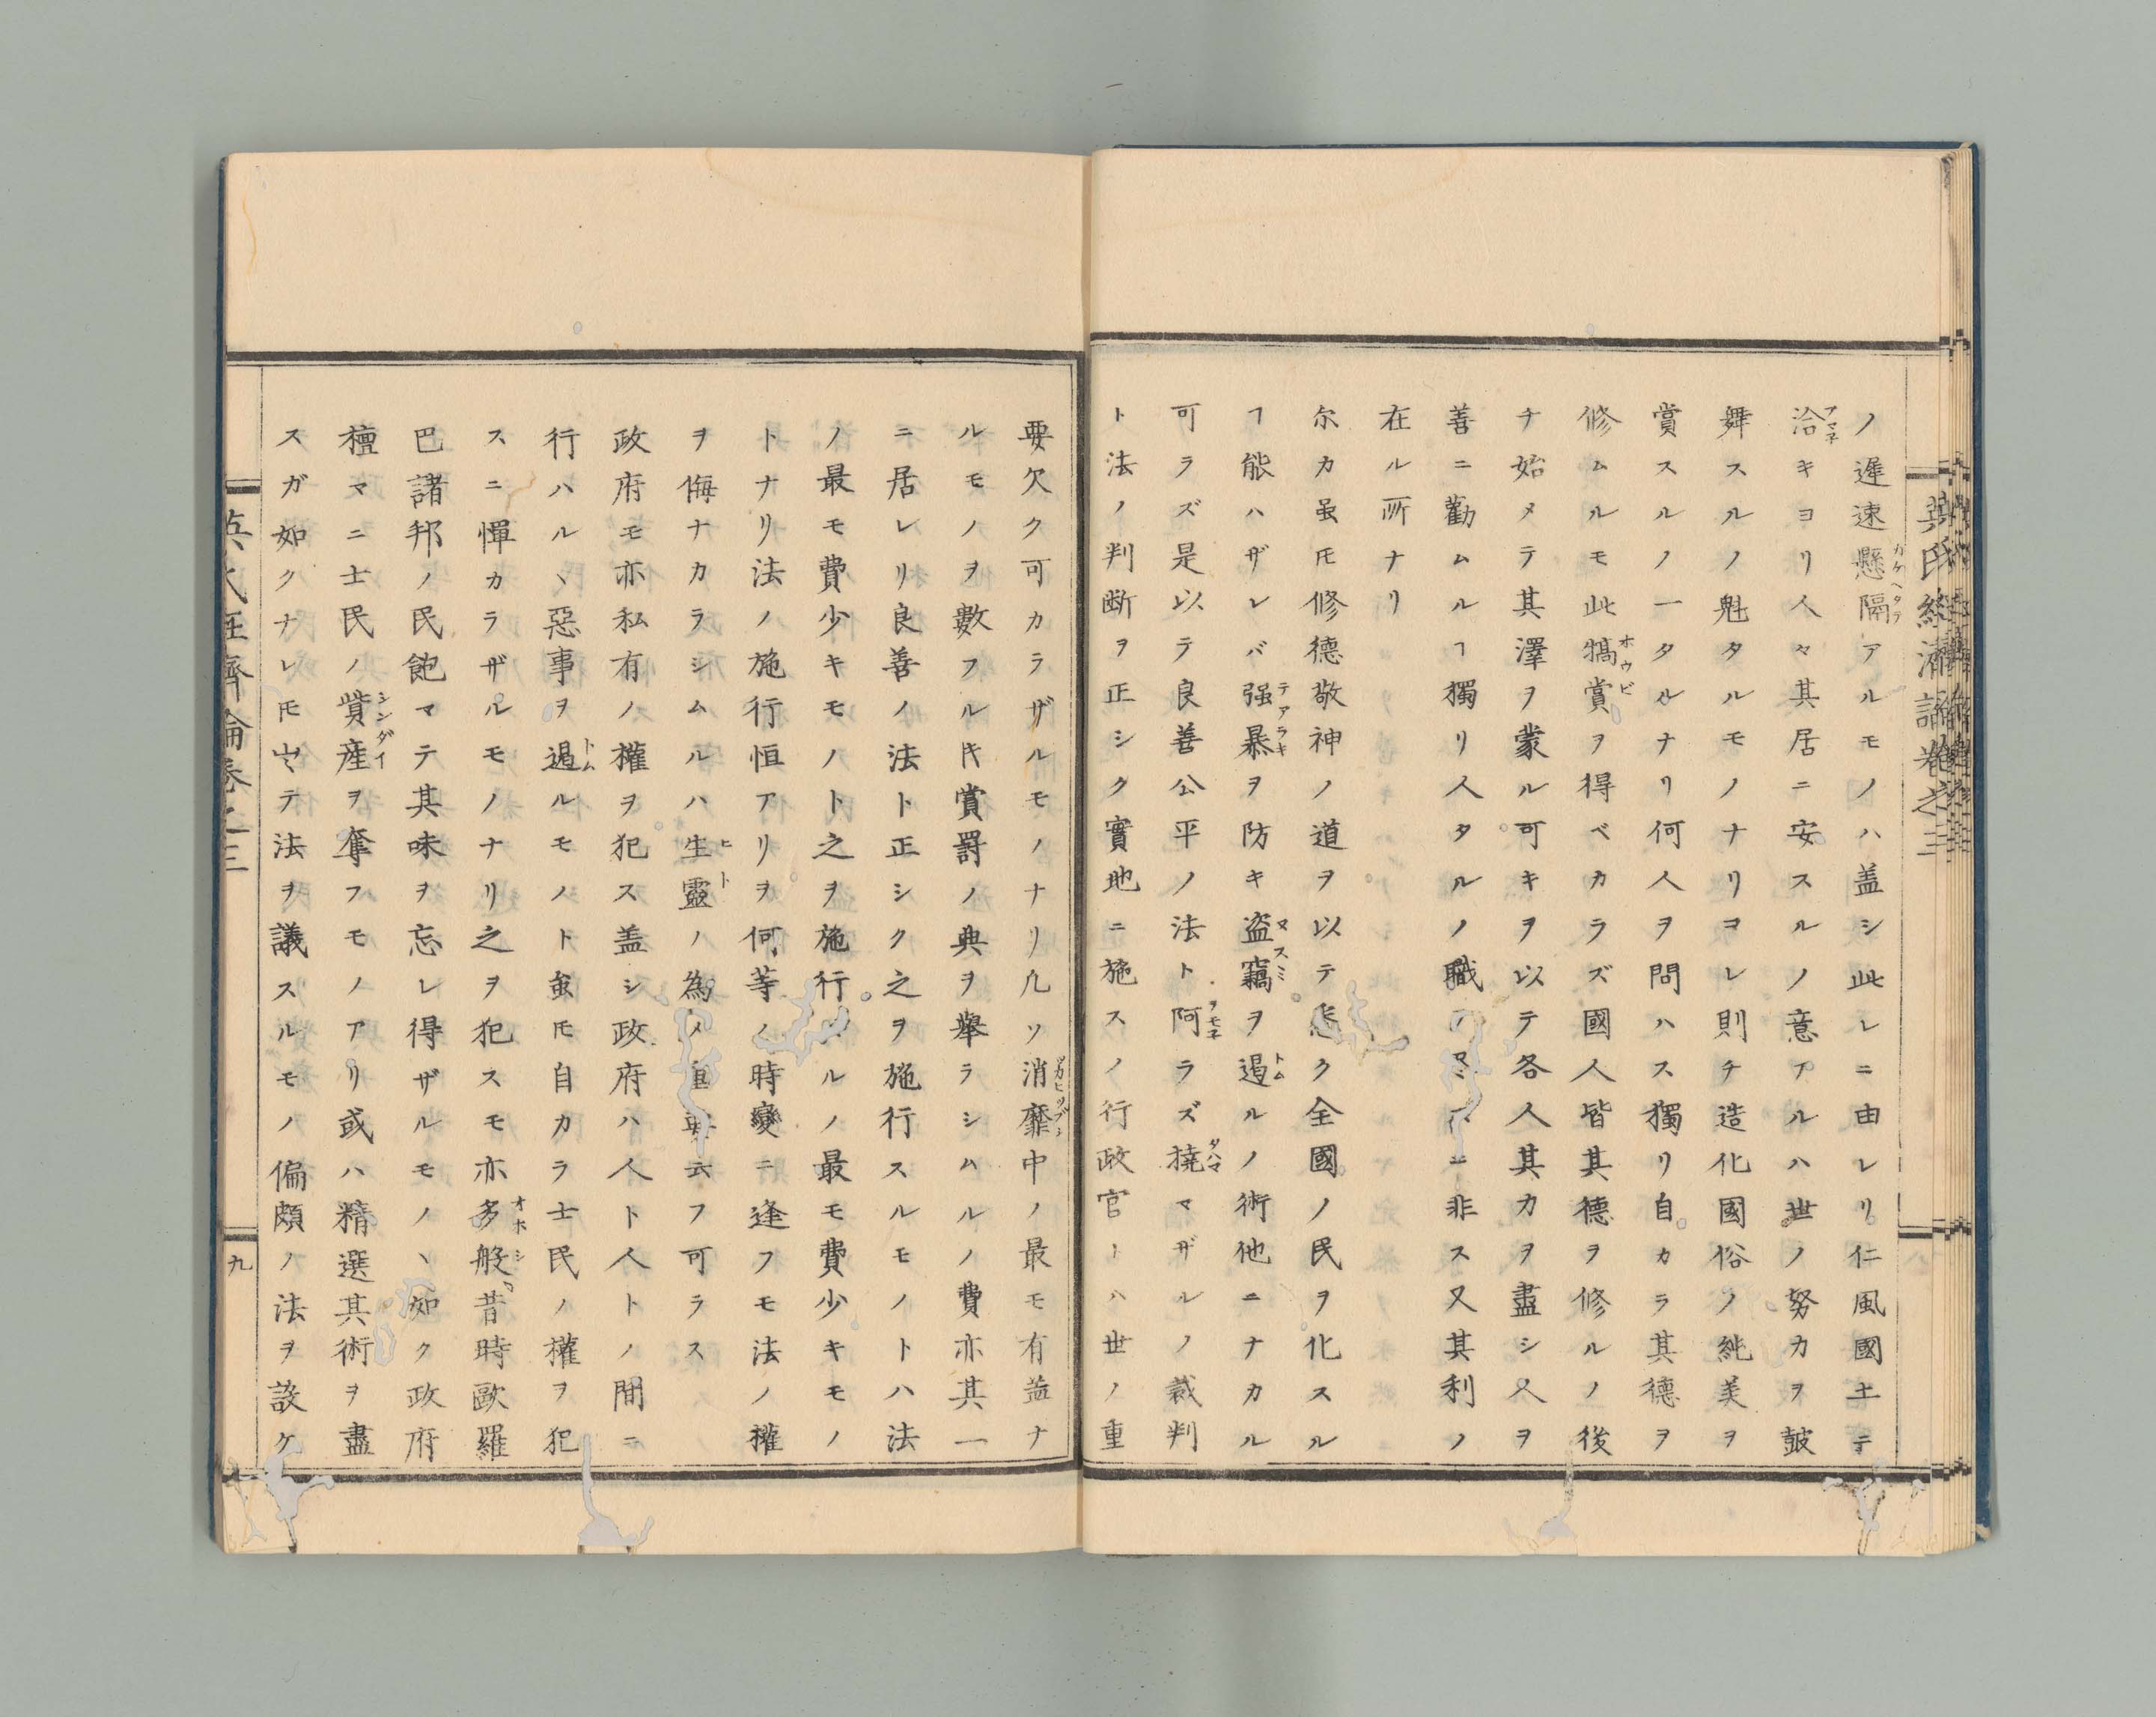 英氏經濟論卷之三
ノ遲速懸隔アルモノハ盖シ此レニ由レリ仁風國土ニテ
洽キヨリ人々其居ニ安スルノ意アルハ世ノ努カヲ皷
舞スルノ魁タルモノナリヨレ則チ造化國俗ノ純美ヲ
賞スルノ一タルナリ何人ヲ問ハス獨リ自カラ其德ヲ
修ムルモ此犒賞ヲ得ベカラズ國人皆其德ヲ修ルノ後
チ始メテ其澤ヲ蒙ル可キヲ以テ各人其カヲ盡シ人ヲ
善ニ勸ムルヿ獨リ人タルノ職ノミニ非ス又其利ノ
在ル所ナリ
尓カ虽𪜈修德敬神ノ道ヲ以テ悉ク全國ノ民ヲ化スル
ヿ能ハザレバ强暴ヲ防キ盗竊ヲ遏ルノ術他ニナカル
可ラズ是以テ良善公平ノ法ト阿ラズ撓マザルノ裁判
ト法ノ判断ヲ正シク實地ニ施スノ行政官トハ世ノ重
要欠ク可カラザルモノナリ凢ソ消靡中ノ最モ有益ナ
ルモノヲ數フル𪜈賞罸ノ典ヲ舉ラシムルノ費亦其一
ニ居レリ良善ノ法ト正シク之ヲ施行スルモノトハ法
ノ最モ費少キモノト之ヲ施行スルノ最モ費少キモノ
トナリ法ノ施行恒アリヲ何等ノ時變ニ逢フモ法ノ權
ヲ侮ナカラシムルハ生靈ノ為メ重要云フ可ラス
政府モ亦私有ノ權ヲ犯ス盖シ政府ハ人ト人トノ間ニ
行ハルヽ惡事ヲ遏ルモノト虽𪜈自カラ士民ノ權ヲ犯
スニ憚カラザルモノナリ之ヲ犯スモ亦多般ヿ昔時歐羅
巴諸邦ノ民飽マテ其味ヲ忘レ得ザルモノヽ如ク政府
檀マニ士民ノ貲産ヲ奪フモノアリ或ハ精選其術ヲ盡
スガ如クナレ𪜈テ法ヲ議スルモノ偏頗ノ法ヲ設ケ
英氏經濟論卷之三
九